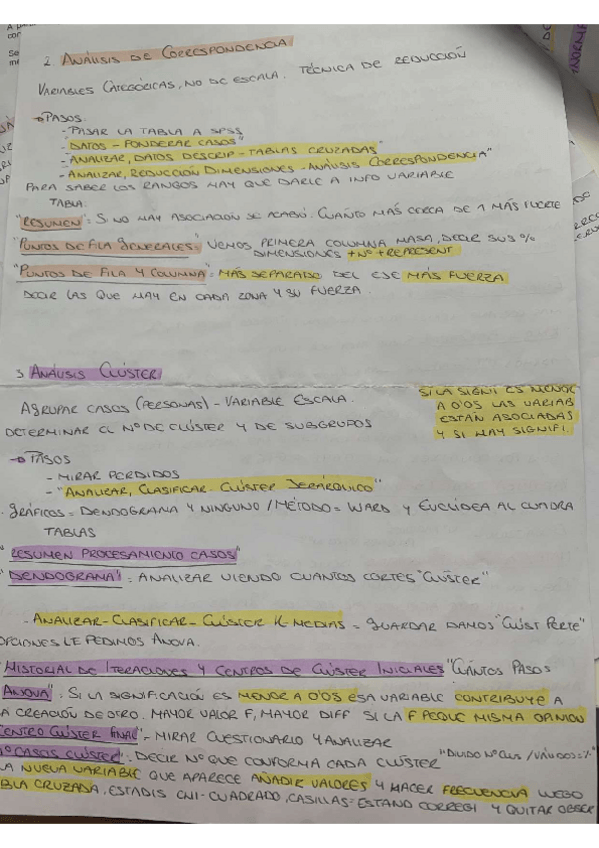 2. ANÁLISIS DE CORRESPONDENCIA
VARIABLES CATEGÓRICAS, NO DE ESCALA. TÉCNICA DE REDUCCIÓN
PASOS:
- PASAR LA TABLA A SPSS
- "DATOS - PONDERAR CASOS"
- "ANALIZAR, DATOS DESCRIP - TABLAS CRUZADAS"
- ANALIZAR, REDUCCIÓN DIMENSIONES - ANÁLISIS CORRESPONDENCIA"
PARA SABER LOS RANGOS HAY QUE DARLE A INFO VARIABLE
TABLA.
"RESUMEN": SI NO HAY ASOCIACIÓN SE ACABÓ. CUANTO MÁS CERCA DE 1 MÁS FUERTE
"PUNTOS DE FILA GENERALES": VEMOS PRIMERA COLUMNA MASA, DECIR SUS %
DIMENSIONES +Nº +REPRESENT
"PUNTOS DE FILA Y COLUMNA": MÁS SEPARADO DEL EJE MÁS FUERZA
DECIR LAS QUE HAY EN CADA ZONA Y SU FUERZA.
3 ANÁLISIS CLÚSTER
AGRUPAR CASOS (PERSONAS) - VARIABLE ESCALA.
DETERMINAR EL Nº DE CLÚSTER Y DE SUBGRUPOS
SI LA SIGNI ES MENOR
A 0'05 LAS VARIAB
ESTÁN ASOCIADAS
Y SI HAY SIGNIFI.
PASOS
- MIRAR PERDIDOS
- "ANALIZAR, CLASIFICAR - CLÚSTER JERÁRQUICO"
. GRÁFICOS = DENDOGRANA Y NINGUNO / MÉTODO = WARD Y EUCLÍDEA AL CUADRA
TABLAS
"RESUMEN PROCESAMIENTO CASOS"
"DENDOGRANA": ANALIZAR VIENDO CUANTOS CORTES "CLÚSTER"
- ANALIZAR - CLASIFICAR - CLÚSTER K-MEDIAS = GUARDAR DAMOS "CLÚST PERTE"
OPCIONES LE PEDIMOS ANOVA.
"HISTORIAL DE ITERACIONES Y CENTROS DE CLÚSTER INICIALES" CUÁNTOS PASOS
ANOVA": SI LA SIGNIFICACIÓN ES MENOR A 0'05 ESA VARIABLE CONTRIBUYE A
LA CREACIÓN DE OTRO. MAYOR VALOR F, MAYOR DIFF SI LA F PEQUE MISMA OPINIÓN
CENTRO CLÚSTER FINAL" - MIRAR CUESTIONARIO Y ANALIZAR
Nº CASOS CLÚSTER": DECIR Nº QUE CONFORMA CADA CLÚSTER
LA NUEVA VARIABLE QUE APARECE AÑADIR VALORES Y HACER FRECUENCIA LUEGO
TABLA CRUZADA, ESTADIS CHI-CUADRADO, CASILLAS = ESTAND CORREGI Y QUITAR OBSER